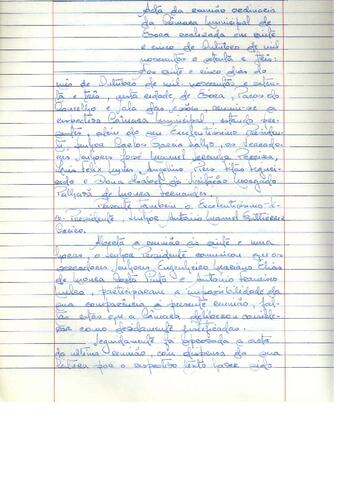 Acta da reunião ordinária
da Câmara Municipal de
Évora realizada em vinte
e cinco de Outubro de mil
novecentos e setenta e três:
Aos vinte e cinco dias do
mês de Outubro de mil novecentos e seten-
ta e três, nesta cidade de Évora, Paços do
Concelho e sala das sessões, reuniu-se a
respectiva Câmara Municipal, estando pre-
sentes, além do seu Excelentíssimo Presiden-
te, Senhor Carlos Barra Ralho, os Vereado-
res Senhores José Manuel Pereira,
Luís Félix, Angelino Pires
e Dona Isabel da
de Moura Fernandes.
Presente também o Excelentíssimo Vi-
ce-Presidente, Senhor António Manuel Gutierres
Aberta a reunião às vinte e uma
horas, o Senhor Presidente comunicou que os
vereadores Senhores Engenheiro Mariano Elias
de Moura Costa Pinto e António Francisco
participaram a impossibilidade da
sua comparência à presente reunião, fal-
tas estas que a Câmara deliberou conside-
rar como devidamente justificadas.
Seguidamente foi aprovada a acta
da última reunião, com dispensa da sua
leitura por o respectivo texto haver sido